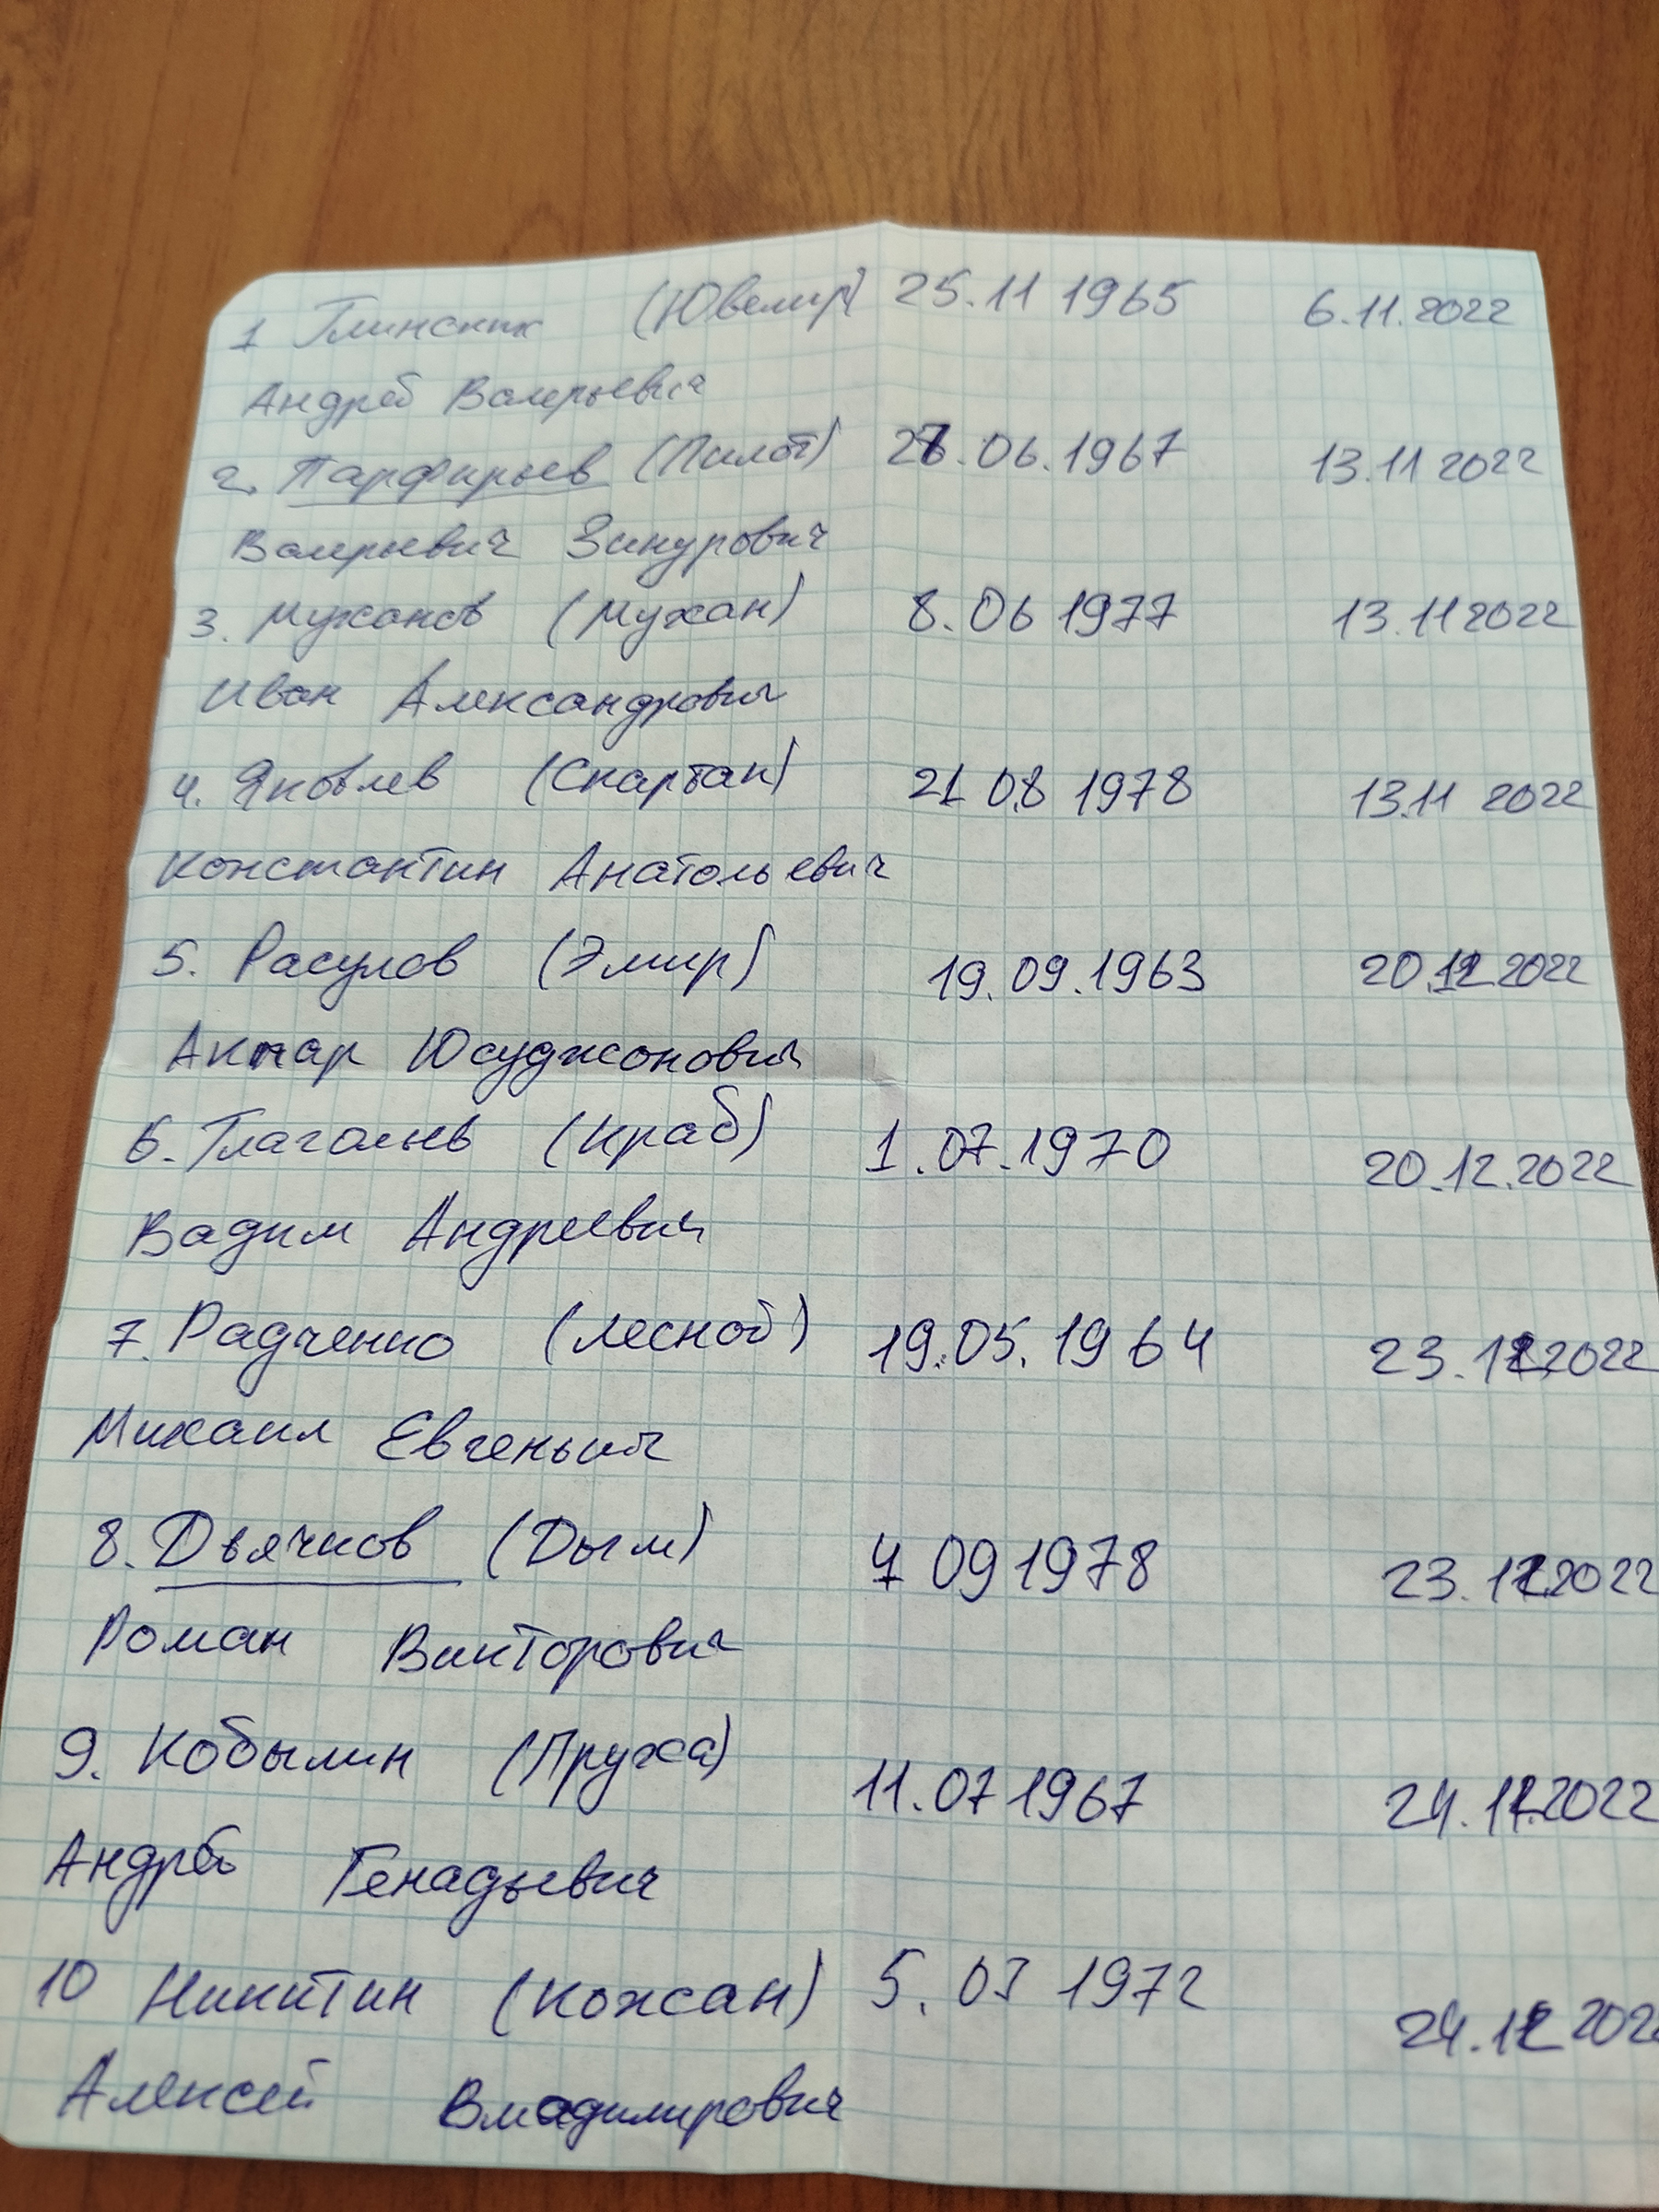 1 Глинских (Ювелир) 25.11 1965 6.11.2022
Андрей Валерьевич
2. Парфирьев (Пилот) 27.06.1967 13.11 2022
Валерьевич Зинурович
3. Муханов (Мухан) 8.06 1977 13.11 2022
Иван Александрович
4. Яковлев (Спартан) 21 08 1978 13.11 2022
Константин Анатольевич
5. Расулов (Эмир) 19.09.1963 20.12 2022
Юсуджонович
6. Глаголев (Краб) 1.07.1970 20.12.2022
Вадим Андреевич
7. Радченко (лесной) 19.05.1964 23.12.2022
Михаил Евгеньич
8. Двячков (Дым) 7 09 1978 23.12.2022
Роман Викторович
9. Кобылин (Пружа) 11.07 1967 24.12.2022
Андрей Генадьевич
10 Никитин (Кожан) 5.03 1972 24.12 202
Алексей Владимирович